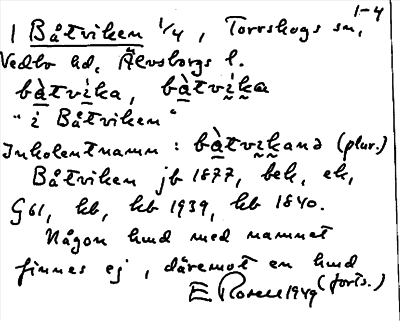 1-4
1 Båtviken 1/4, Torrskogs sn,
Vedbo hd, Älvsborgs l.
bàtvika, bàtvika
"i Båtviken"
Inkolentnamn : bàtvikand (plur.)
Båtviken jb 1877, bek, ek,
G61, hb, hb 1939, hb 1840.
Någon hmd med namnet
finnes ej, däremot en hmd
E Rosell 1949 (forts.)